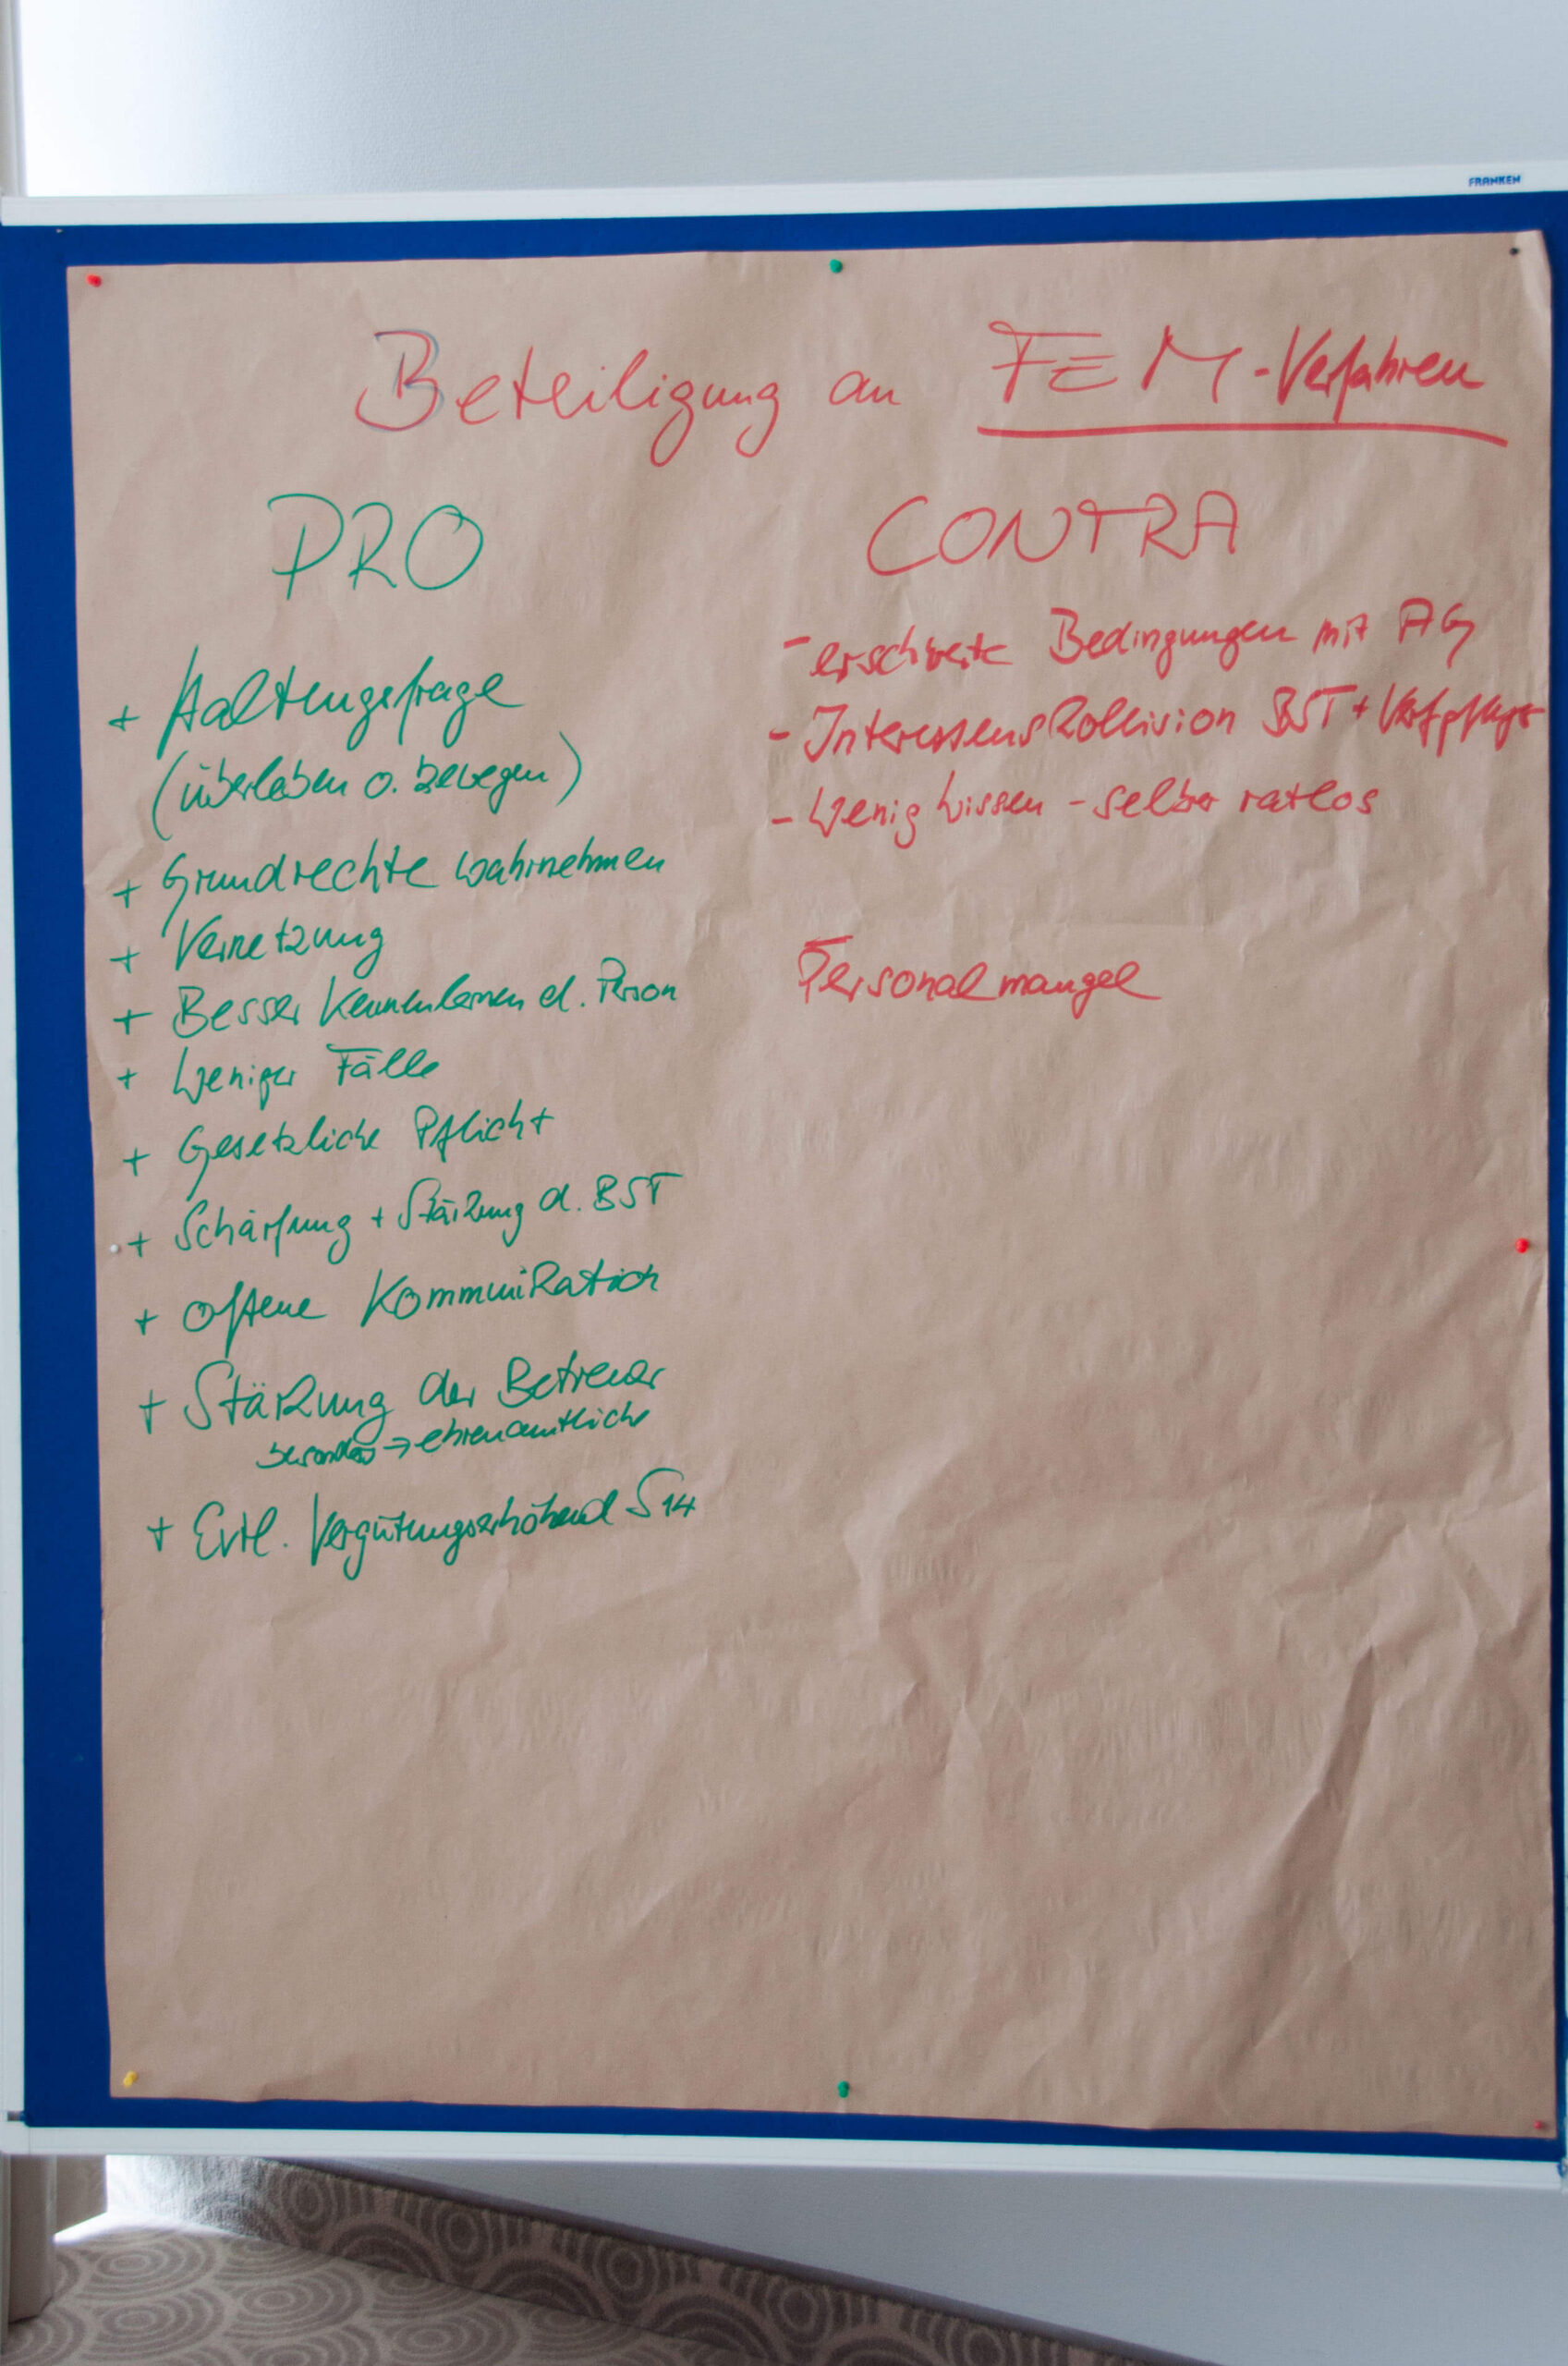 FRANKEN
Beteiligung an FEM-Verfahren
PRO
+ Haltungsfrage
(überleben o. bewegen)
+ Grundrechte wahrnehmen
+ Vernetzung
+ Besser Kennenlernen d. Person
+ Weniger Fälle
+ Gesetzliche Pflicht
+ Schärfung + Stärkung d. BST
+ offene Kommunikation
+ Stärkung der Betreuer
besonders → ehrenamtliche
+ Evtl. Vergütungserhöhend S14
CONTRA
- erschwerte Bedingungen mit AG
- Interessenskollision BST + Verfpfleger
- Wenig Wissen - selber ratlos
Personalmangel